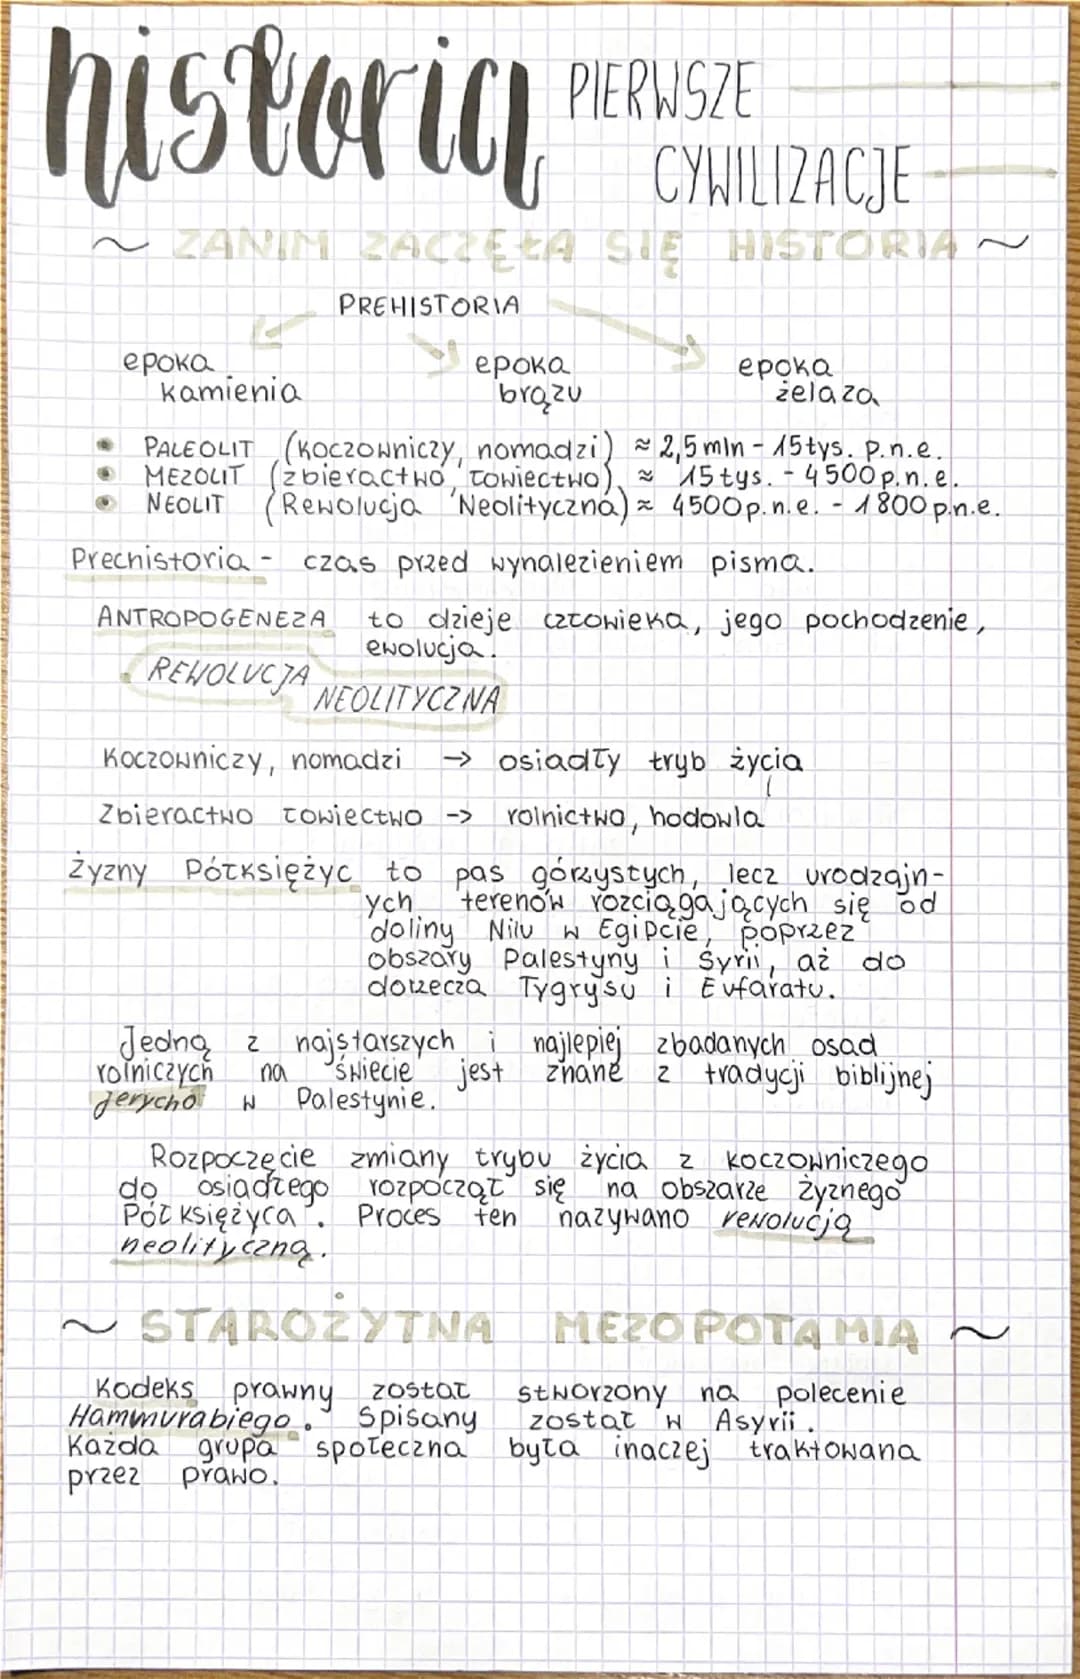 historia PIERWSZE
CYWILIZACJE
~ ZANIM ZACZĘŁA SIĘ HISTORIA ~
PREHISTORIA
epoka kamienia
epoka brązu
epoka żelaza
• PALEOLIT (koczowniczy, nomadzi) ≈ 2,5 mln - 15 tys. p.n.e.
• MEZOLIT (zbieractwo, łowiectwo) ≈ 15 tys. - 4500 p.n.e.
• NEOLIT (Rewolucja Neolityczna) ≈ 4500 p.n.e. - 1800 p.n.e.
Prechistoria - czas przed wynalezieniem pisma.
ANTROPOGENEZA to dzieje człowieka, jego pochodzenie,
ewolucja.
REWOLUCJA
NEOLITYCZNA
Koczowniczy, nomadzi → osiadły tryb życia
Zbieractwo łowiectwo -> rolnictwo, hodowla
Żyzny Półksiężyc to pas górzystych, lecz urodzajn-
ych terenów rozciągających się od
doliny Nilu w Egipcie, poprzez
obszary Palestyny i Syrii, aż do
dorzecza Tygrysu i Eufaratu.
Jedną z najstarszych i najlepiej zbadanych osad
rolniczych na świecie jest znane z tradycji biblijnej
Jerycho w Palestynie.
Rozpoczęcie zmiany trybu życia z koczowniczego
do osiadłego rozpoczął się na obszarze żyznego
Półksiężyca. Proces ten nazywano rewolucją
neolityczną.
~ STAROŻYTNA MEZOPOTAMIA ~
Kodeks prawny został stworzony na polecenie
Hammurabiego. Spisany został w Asyrii.
Każda grupa społeczna była inaczej traktowana
przez prawo.